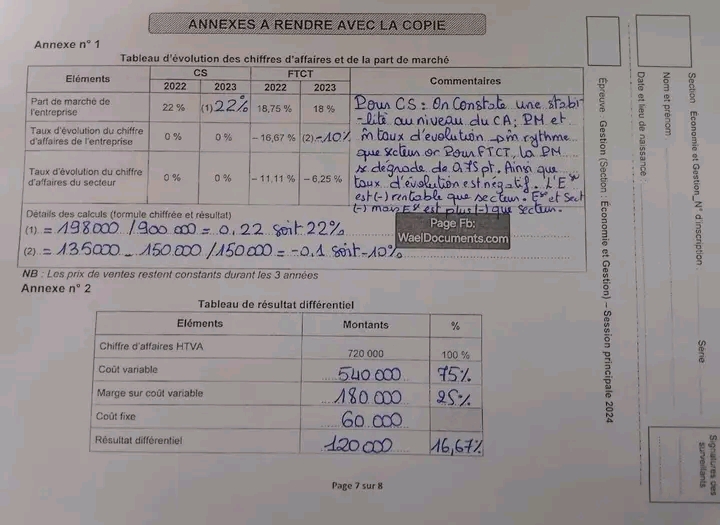 ANNEXES A RENDRE AVEC LA COPIE
Annexe n° 1
Tableau d'évolution des chiffres d'affaires et de la part de marché
Eléments CS FTCT Commentaires
2022 2023 2022 2023
Part de marché de l'entreprise 22 % (1) 22% 18,75 % 18 %
Taux d'évolution du chiffre d'affaires de l'entreprise 0 % 0 % -16,67 % (2) -10%
Taux d'évolution du chiffre d'affaires du secteur 0 % 0 % -11,11 % -6,25 %
Pour CS : On Constate une stabi-
-lité au niveau du CA; PM et
m̂ taux d'évolution m̂ rythme
que secteur or Pour FTCT, la PM
se dégrade de 0,75 pt. Ainsi que
taux d'évolution est négatif. L'Ese
est (-) rentable que secteur. Ese et Sect
(-) mais Ese est plus (-) que secteur.
Détails des calculs (formule chiffrée et résultat)
(1) = 198000 / 900 000 = 0,22 soit 22%
(2) = 135000 - 150.000 / 150 000 = -0,1 soit -10%
Page Fb:
WaelDocuments.com
NB : Les prix de ventes restent constants durant les 3 années
Annexe n° 2
Tableau de résultat différentiel
Eléments Montants %
Chiffre d'affaires HTVA 720 000 100 %
Coût variable 540 000 75%
Marge sur coût variable 180 000 25%
Coût fixe 60.000
Résultat différentiel 120 000 16,67%
Page 7 sur 8
Épreuve : Gestion (Section : Économie et Gestion) – Session principale 2024
Section : Economie et Gestion N° d'inscription :
Série
Nom et prénom
Date et lieu de naissance :
Signatures des
surveillants